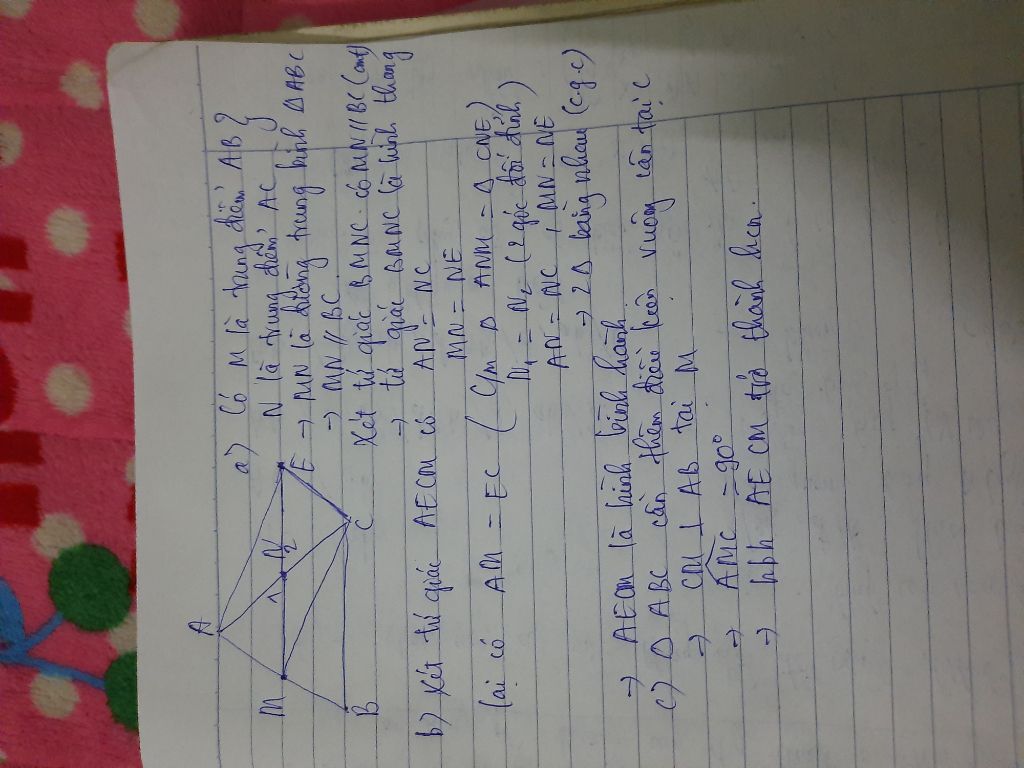 A
M
1
N
2
E
B
C
a) Có M là trung điểm AB }
N là trung điểm AC
→ MN là đường trung bình Δ ABC
→ MN // BC
Xét tứ giác BMNC có MN // BC (cmt)
→ tứ giác BMNC là hình thang
b) Xét tứ giác AECM có AN = NC
MN = NE
lại có AM = EC ( C/m Δ ANM = Δ CNE)
N₁ = N₂ (2 góc đối đỉnh)
AN = NC, MN = NE
→ 2 Δ bằng nhau (c.g.c)
→ AECM là hình bình hành
c) Δ ABC cần thêm điều kiện vuông cân tại C
→ CM ⊥ AB tại M
→ AMC = 90°
→ hbh AECM trở thành hcn.